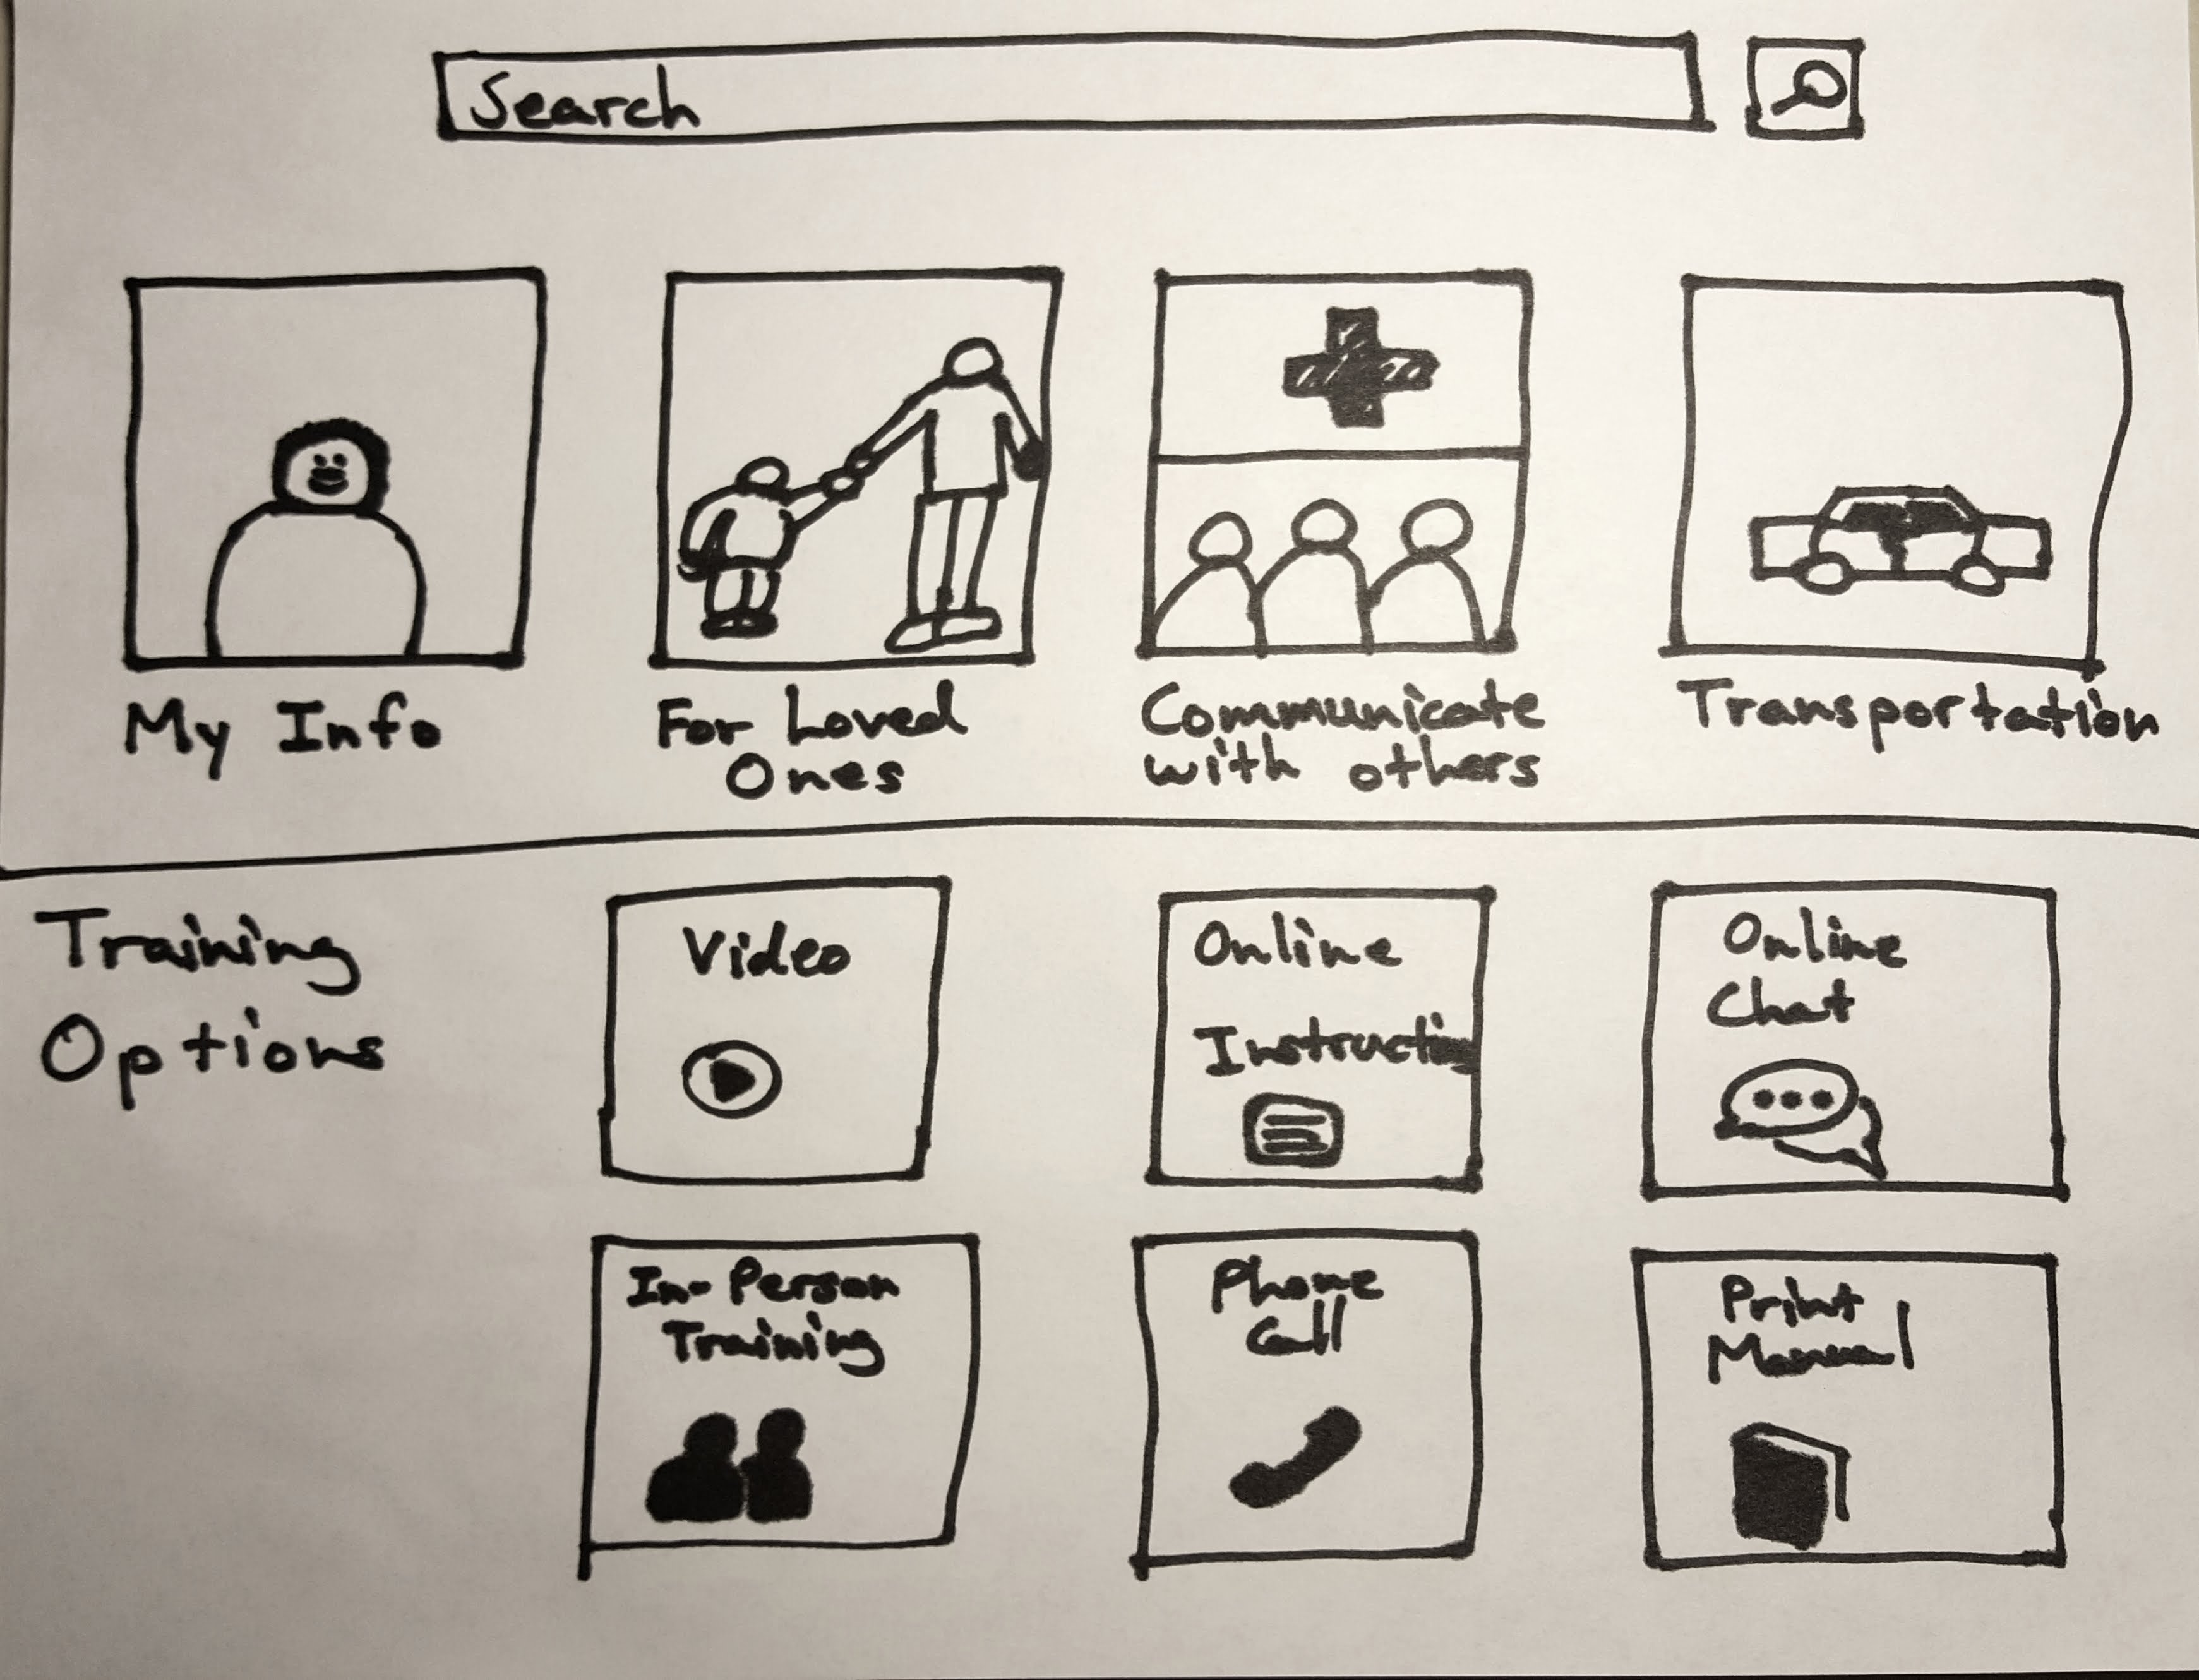 Search
My Info
For Loved
Ones
Communicate
with others
Transportation
Training
Options
Video
Online
Instruction
Online
Chat
In-Person
Training
Phone
Call
Print
Manual